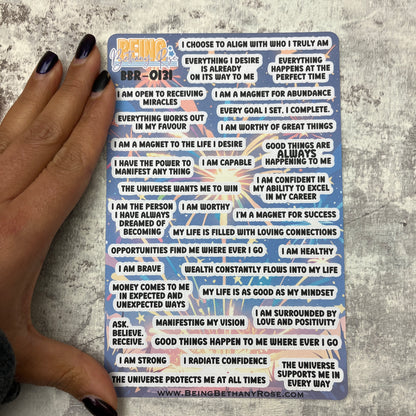 BEING
I CHOOSE TO ALIGN WITH WHO I TRULY AM
BBR-0131
EVERYTHING I DESIRE
IS ALREADY
ON ITS WAY TO ME
EVERYTHING
HAPPENS AT THE
PERFECT TIME
I AM OPEN TO RECEIVING
MIRACLES
I AM A MAGNET FOR ABUNDANCE
EVERY GOAL I SET, I COMPLETE.
EVERYTHING WORKS OUT
IN MY FAVOUR
I AM WORTHY OF GREAT THINGS
I AM A MAGNET TO THE LIFE I DESIRE
GOOD THINGS ARE
ALWAYS
HAPPENING TO ME
I HAVE THE POWER TO
MANIFEST ANY THING
I AM CAPABLE
I AM CONFIDENT IN
MY ABILITY TO EXCEL
IN MY CAREER
THE UNIVERSE WANTS ME TO WIN
I AM THE PERSON
I HAVE ALWAYS
DREAMED OF
BECOMING
I AM WORTHY
I'M A MAGNET FOR SUCCESS
MY LIFE IS FILLED WITH LOVING CONNECTIONS
OPPORTUNITIES FIND ME WHERE EVER I GO
I AM HEALTHY
I AM BRAVE
WEALTH CONSTANTLY FLOWS INTO MY LIFE
MONEY COMES TO ME
IN EXPECTED AND
UNEXPECTED WAYS
MY LIFE IS AS GOOD AS MY MINDSET
ASK,
BELIEVE,
RECEIVE.
MANIFESTING MY VISION
I AM SURROUNDED BY
LOVE AND POSITIVITY
GOOD THINGS HAPPEN TO ME WHERE EVER I GO
I AM STRONG
I RADIATE CONFIDENCE
THE UNIVERSE
SUPPORTS ME IN
EVERY WAY
THE UNIVERSE PROTECTS ME AT ALL TIMES
WWW.BEINGBETHANYROSE.COM